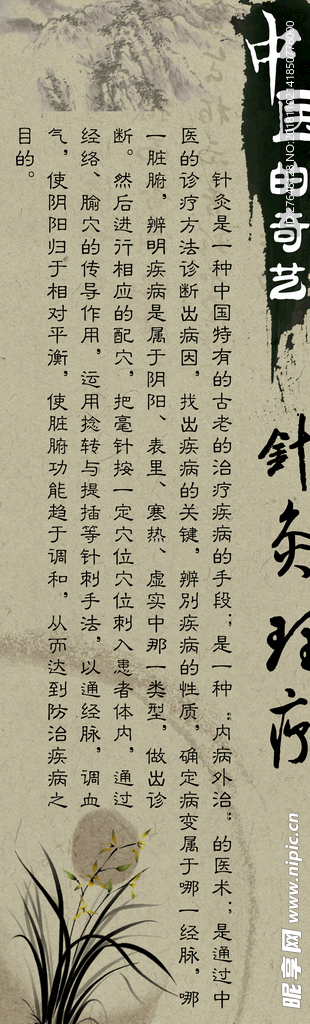 中医的奇艺
針灸理疗
针灸是一种中国特有的古老的治疗疾病的手段；是一种“内病外治”的医术；是通过中
医的诊疗方法诊断出病因，找出疾病的关键，辨别疾病的性质，确定病变属于哪一经脉，哪
一脏腑，辨明疾病是属于阴阳、表里、寒热、虚实中那一类型，做出诊
断。然后进行相应的配穴，把毫针按一定穴位穴位刺入患者体内，通过
经络、腧穴的传导作用，运用捻转与提插等针刺手法，以通经脉，调血
气，使阴阳归于相对平衡，使脏腑功能趋于调和，从而达到防治疾病之
目的。
昵享网 www.nipic.cn